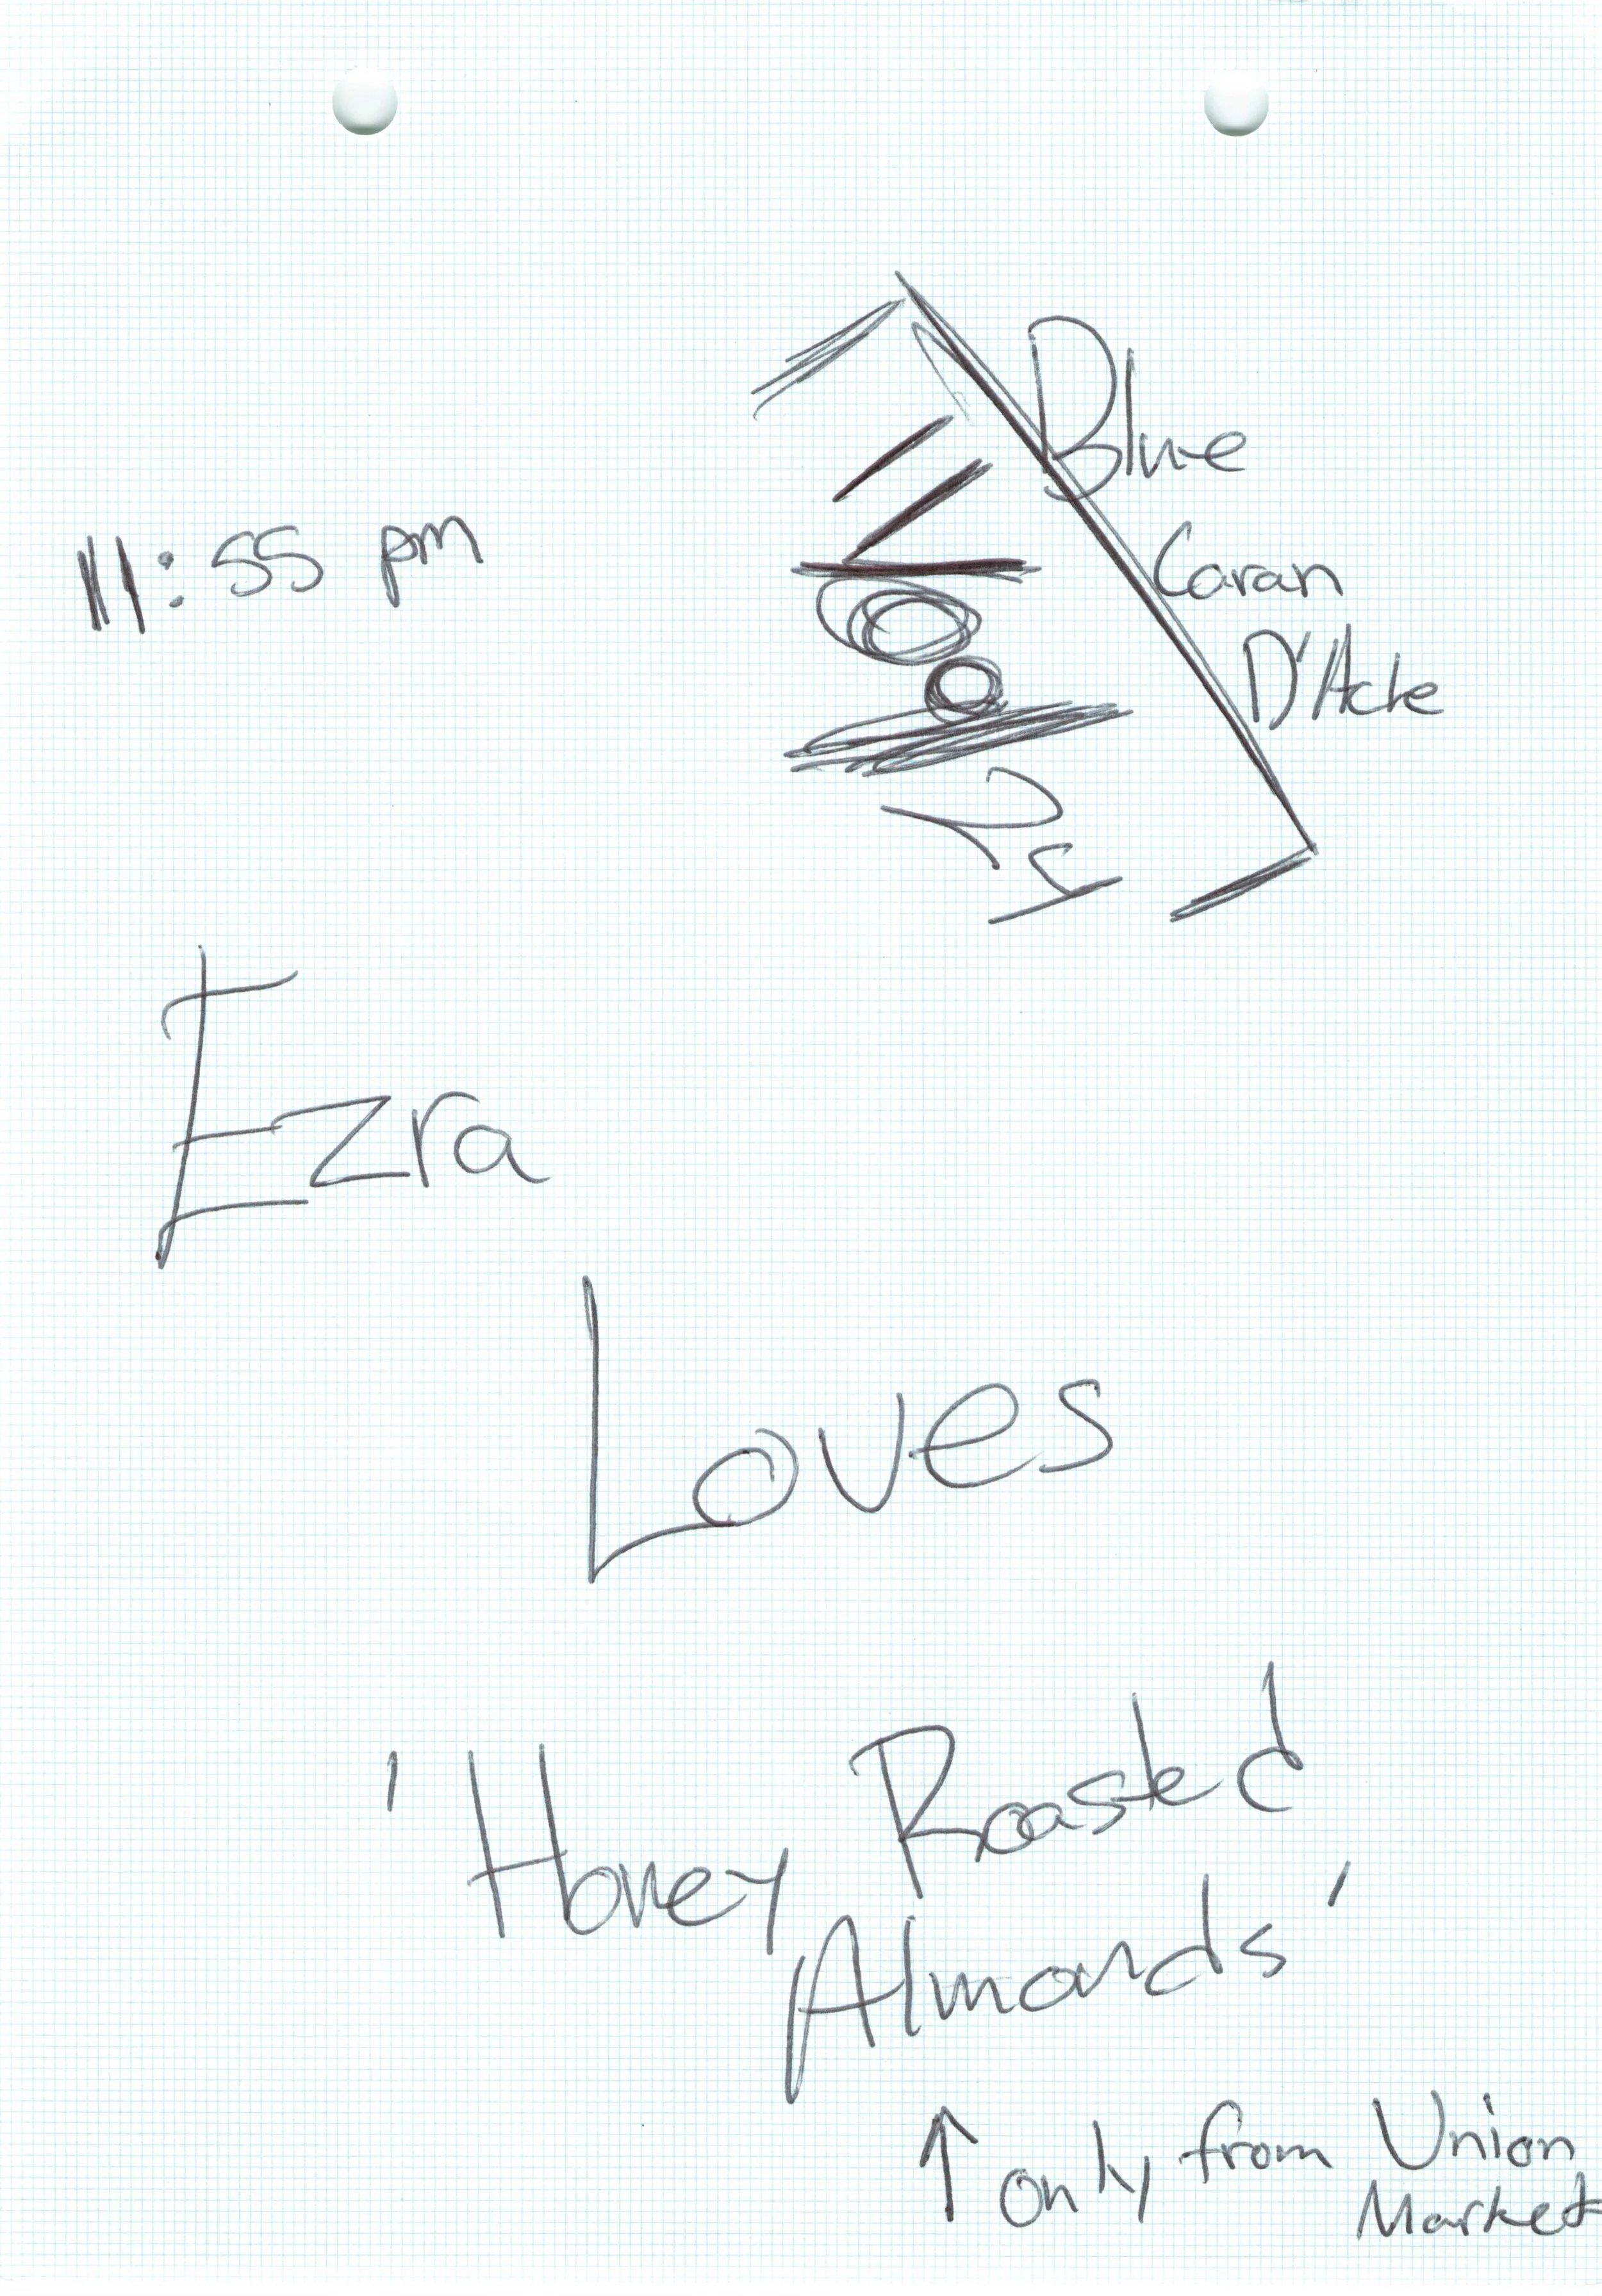 11:55 pm
Blue
Caran
D'Ache
Ezra
Loves
'Honey Roasted
Almonds'
↑ only from Union
Market